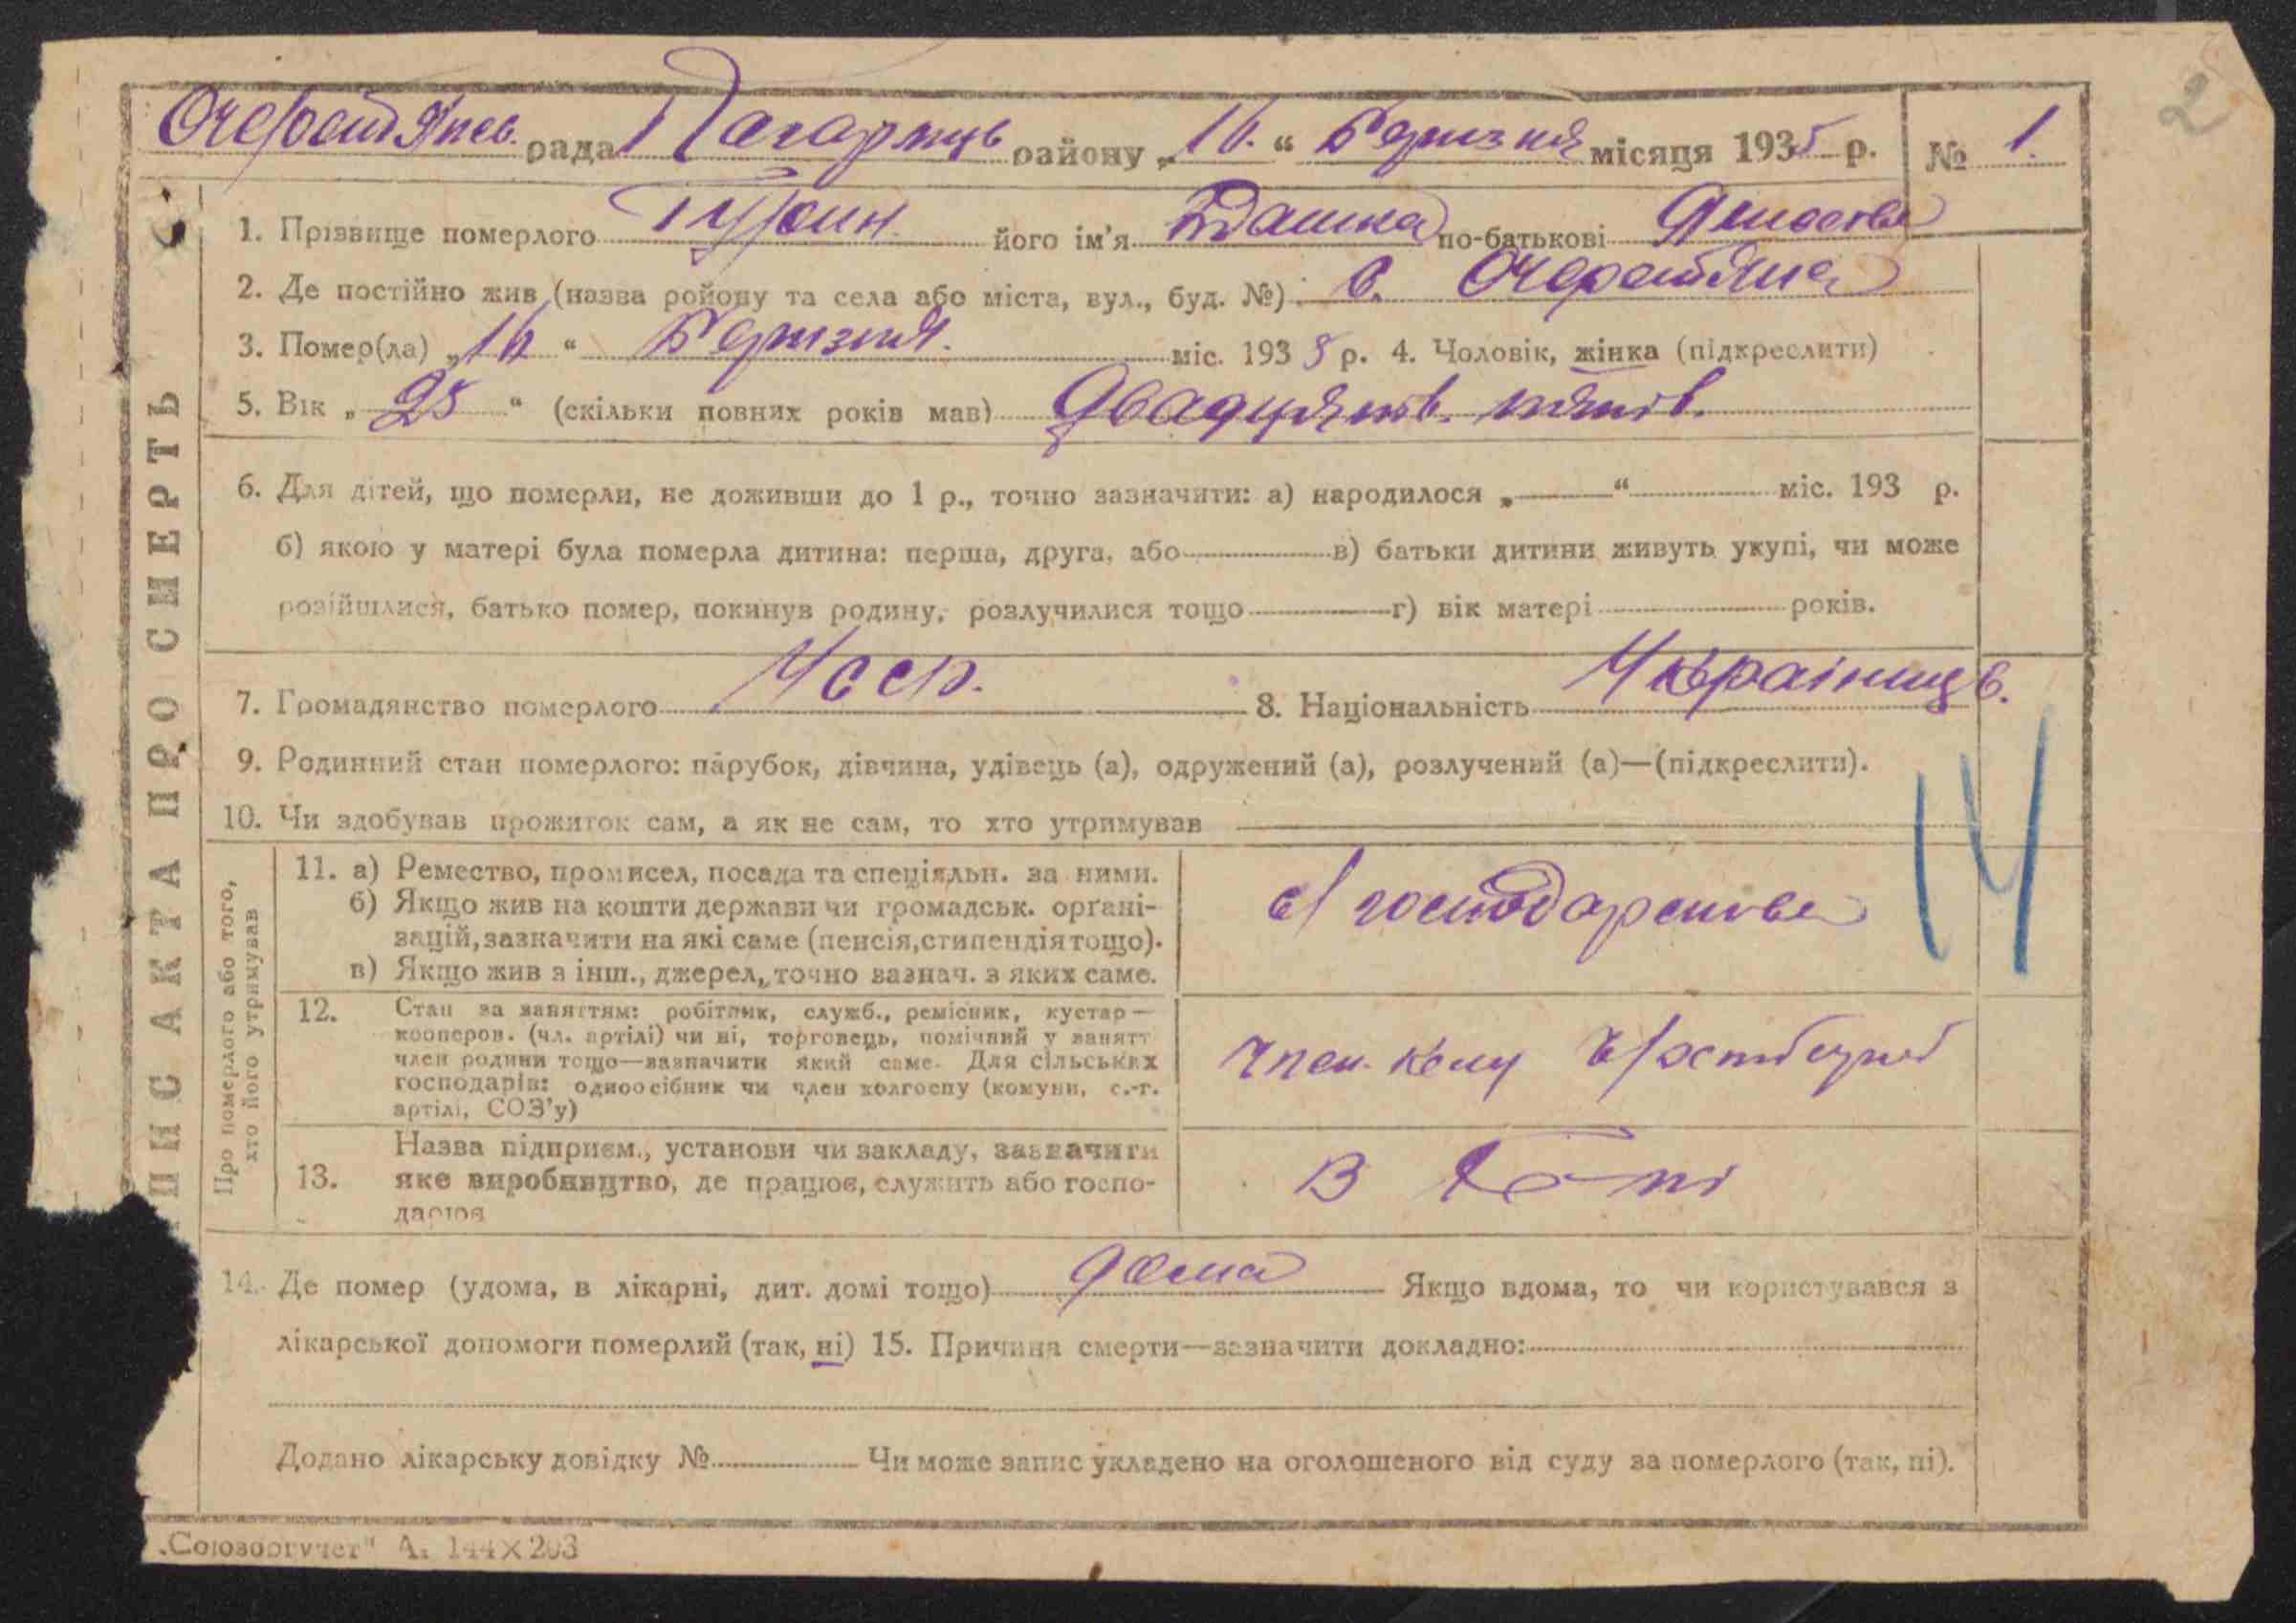 рада району „16.“ місяця 1935 р. № 1.
2
1. Прізвище померлого його ім'я по-батькові
2. Де постійно жив (назва ройону та села або міста, вул., буд. №) с.
3. Помер(ла) „16“ міс. 1935 р. 4. Чоловік, жінка (підкреслити)
5. Вік „25“ (скільки повних років мав) Двадцять пять.
6. Для дітей, що померли, не доживши до 1 р., точно зазначити: а) народилося „ “ міс. 193 р.
б) якою у матері була померла дитина: перша, друга, або в) батьки дитини живуть укупі, чи може
розійшлися, батько помер, покинув родину, розлучилися тощо г) вік матері років.
7. Громадянство померлого Усср. 8. Національність
9. Родинний стан померлого: парубок, дівчина, удівець (а), одружений (а), розлучений (а)—(підкреслити).
10. Чи здобував прожиток сам, а як не сам, то хто утримував
Про померлого або того,
хто його утримував
11. а) Ремество, промисел, посада та спеціяльн. за ними.
б) Якщо жив на кошти держави чи громадськ. орґані-
зацій, зазначити на які саме (пенсія, стипендія тощо).
в) Якщо жив з інш., джерел, точно зазнач. з яких саме.
14
12. Стан за заняттям: робітник, служб., ремісник, кустар—
кооперов. (чл. артілі) чи ні, торговець, помічний у занятт
член родини тощо—зазначити який саме. Для сільських
господарів: одноосібник чи член колгоспу (комуни, с.-г.
артілі, СОЗ'у)
13. Назва підприєм., установи чи закладу, зазначити
яке виробництво, де працює, служить або госпо-
дарює
В
14. Де помер (удома, в лікарні, дит. домі тощо) дома Якщо вдома, то чи користувався з
лікарської допомоги померлий (так, ні) 15. Причина смерти—зазначити докладно:
Додано лікарську довідку № Чи може запис укладено на оголошеного від суду за померлого (так, ні).
„Союзоргучет“ А. 144×203
ПИС АКТА ПРО СМЕРТЬ